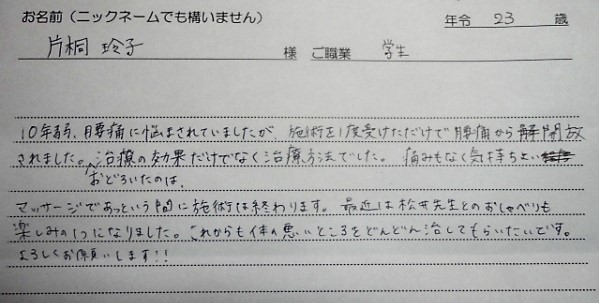 お名前（ニックネームでも構いません）　年令 23 歳
片桐 玲子 様 ご職業 学生
10年弱、腰痛に悩まされていましたが、施術を1度受けただけで腰痛から解放
されました。治療の効果だけでなく治療方法でした。痛みもなく気持ちよい
おどろいたのは、
マッサージであっという間に施術は終わります。最近は松井先生とのおしゃべりも
楽しみの1つになりました。これからも体の悪いところをどんどん治してもらいたいです。
よろしくお願いします!!